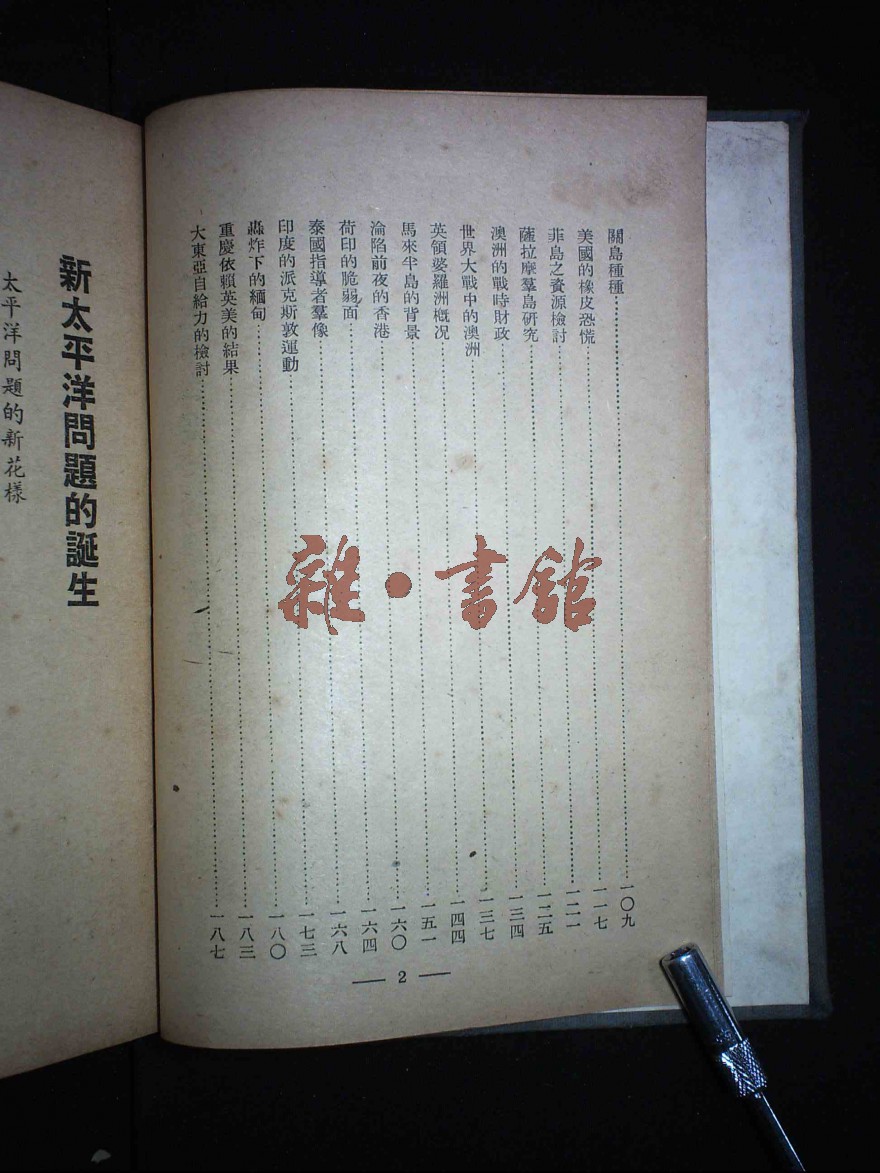 關島種種一〇九
美國的橡皮恐慌一一七
菲島之資源檢討一二一
薩拉摩羣島研究一二五
澳洲的戰時財政一三四
世界大戰中的澳洲一三七
英領婆羅洲概况一四四
馬來半島的背景一五一
淪陷前夜的香港一六〇
荷印的脆弱面一六四
泰國指導者羣像一六八
印度的派克斯敦運動一七三
轟炸下的緬甸一八〇
重慶依賴英美的結果一八三
大東亞自給力的檢討一八七
— 2 —
新太平洋問題的誕生
太平洋問題的新花樣
雜·書館